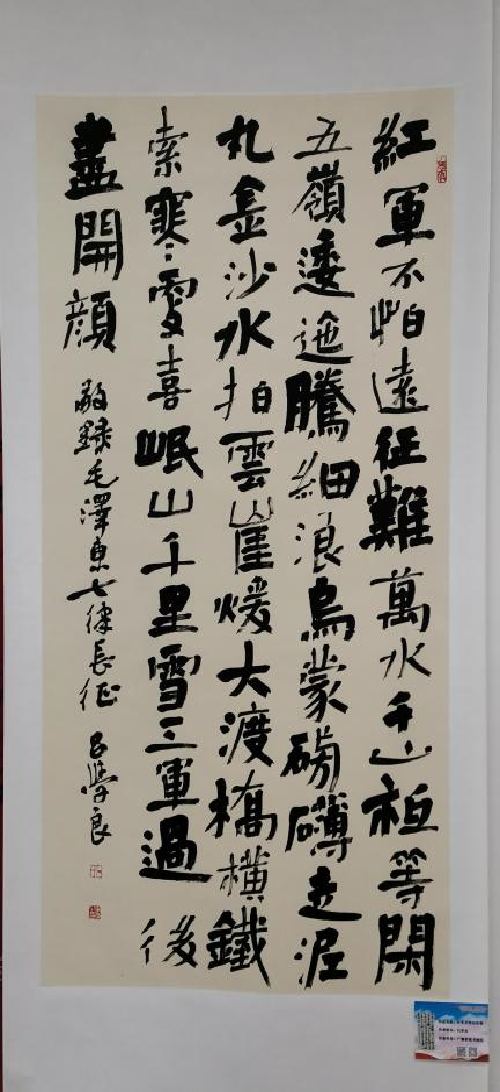 紅軍不怕遠征難萬水千山祗等閑
五嶺逶迤騰細浪烏蒙磅礴走泥
丸金沙水拍雲崖煖大渡橋橫鐵
索寒更喜岷山千里雪三軍過後
盡開顏
敬錄毛澤東七律長征 吕學良